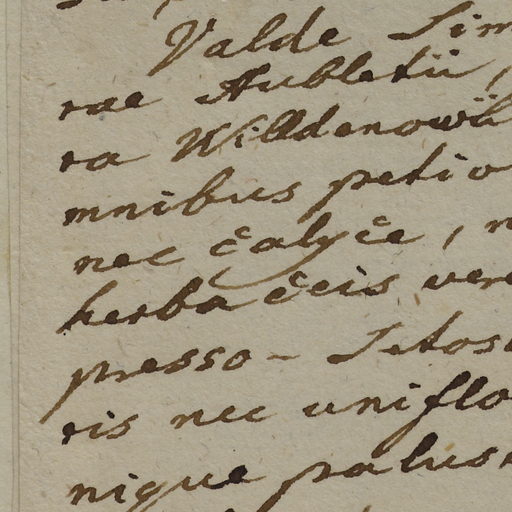 Valde Sim
rae Aubletii,
ra Willdenowii
mnibus petio
nec calyce, n
herbaceis vere
presso - Setos
ris nec uniflo
nique palus